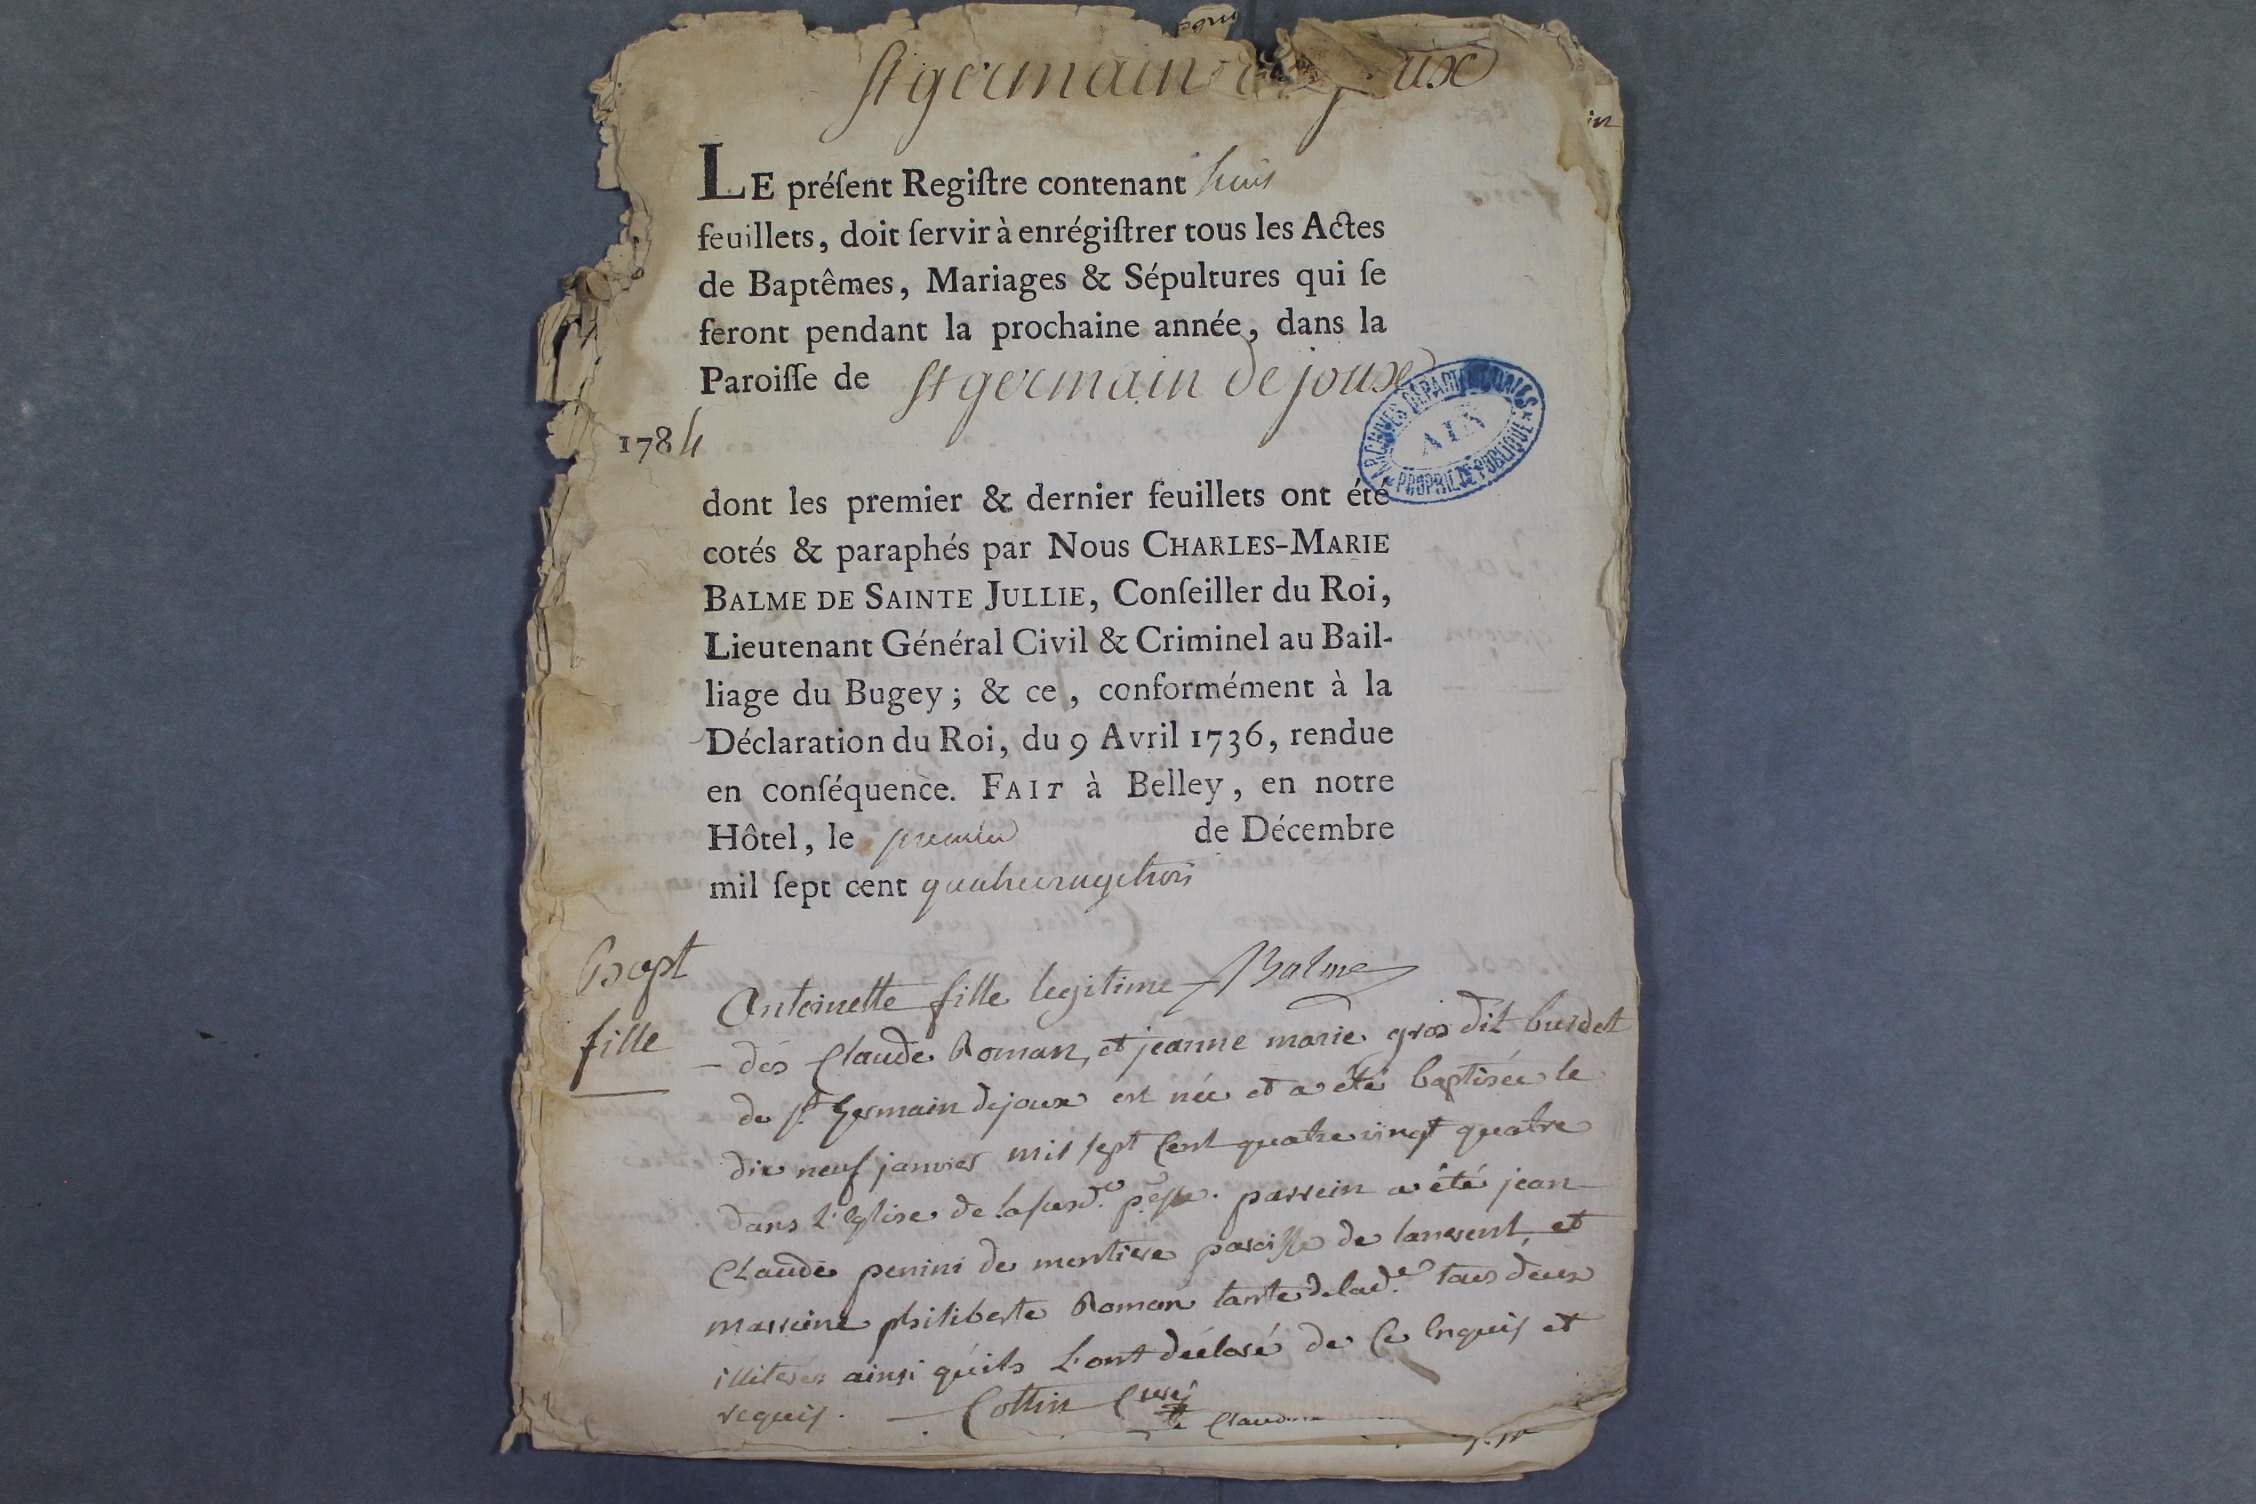 St germain de joux
LE préſent Regiſtre contenant huit
feuillets, doit ſervir à enrégiſtrer tous les Actes
de Baptêmes, Mariages & Sépultures qui ſe
feront pendant la prochaine année, dans la
Paroiſſe de St germain de joux
ARCHIVES DÉPARTEMENTALES
AIN
PROPRIÉTÉ PUBLIQUE
1784
dont les premier & dernier feuillets ont été
cotés & paraphés par Nous CHARLES-MARIE
BALME DE SAINTE JULLIE, Conſeiller du Roi,
Lieutenant Général Civil & Criminel au Bail-
liage du Bugey; & ce, conformément à la
Déclaration du Roi, du 9 Avril 1736, rendue
en conſéquence. FAIT à Belley, en notre
Hôtel, le premier de Décembre
mil ſept cent quatrevingttrois
Balme
Bapt
fille
Antoinette fille legitime
des Claude Roman, et jeanne marie gros dit burdet
de St. Germain dejoux est née et a été baptisée le
dix neuf janvier mil sept Cent quatre vingt quatre
dans l'Eglise de lasusd.e p.sse. parrein a été jean
Claude penini de montiere paroisse de lancrent, et
marreine philiberte Roman tante delad.e tous deux
illiteres ainsi qu'ils L'ont déclaré de Ce Enquis et
requis. Collin Curé